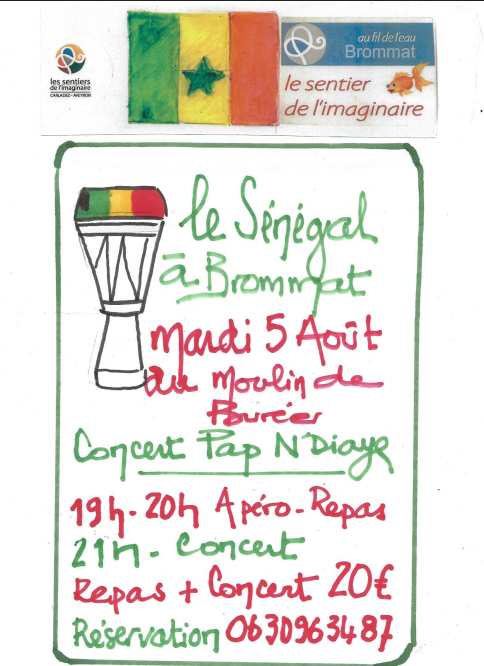 les sentiers
de l'imaginaire
CARLADEZ - AVEYRON
au fil de l'eau
Brommat
le sentier
de l'imaginaire
le Sénégal
à Brommat
Mardi 5 Août
au Moulin de
Concert Pap N'Diaye
19h-20h Apéro-Repas
21h-Concert
Repas + Concert 20€
Réservation 0630963487